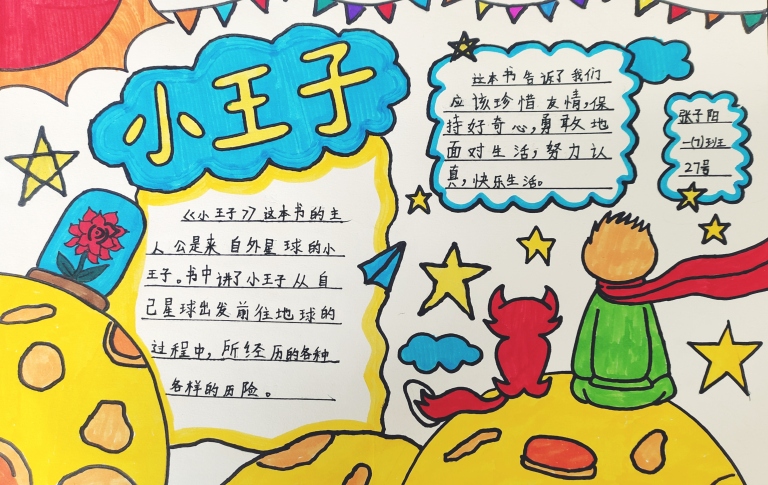 小王子
《小王子》这本书的主
人公是来自外星球的小
王子。书中讲了小王子从自
己星球出发前往地球的
过程中，所经历的各种
各样的历险。
这本书告诉了我们
应该珍惜友情，保
持好奇心，勇敢地
面对生活，努力认
真，快乐生活。
张子阳
一(7)班
27号